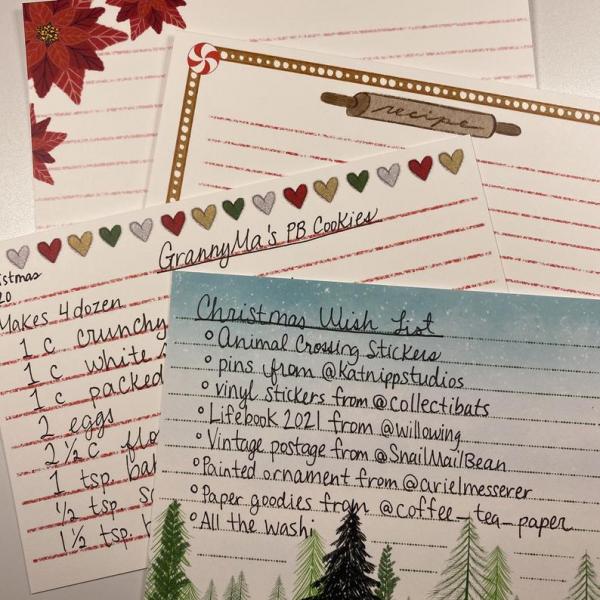 recipe
GrannyMa's PB Cookies
20
Makes 4 dozen
1 c crunchy
1 c white
1 c packed
2 eggs
2 ½ c flo
1 tsp. ba
½ tsp s
1½ tsp.
Christmas Wish List
Animal Crossing Stickers
pins from @katnippstudios
vinyl stickers from @collectibats
Lifebook 2021 from @willowing
Vintage postage from @SnailMailBean
Painted ornament from @arielmesserer
Paper goodies from @coffee_tea_paper
All the washi